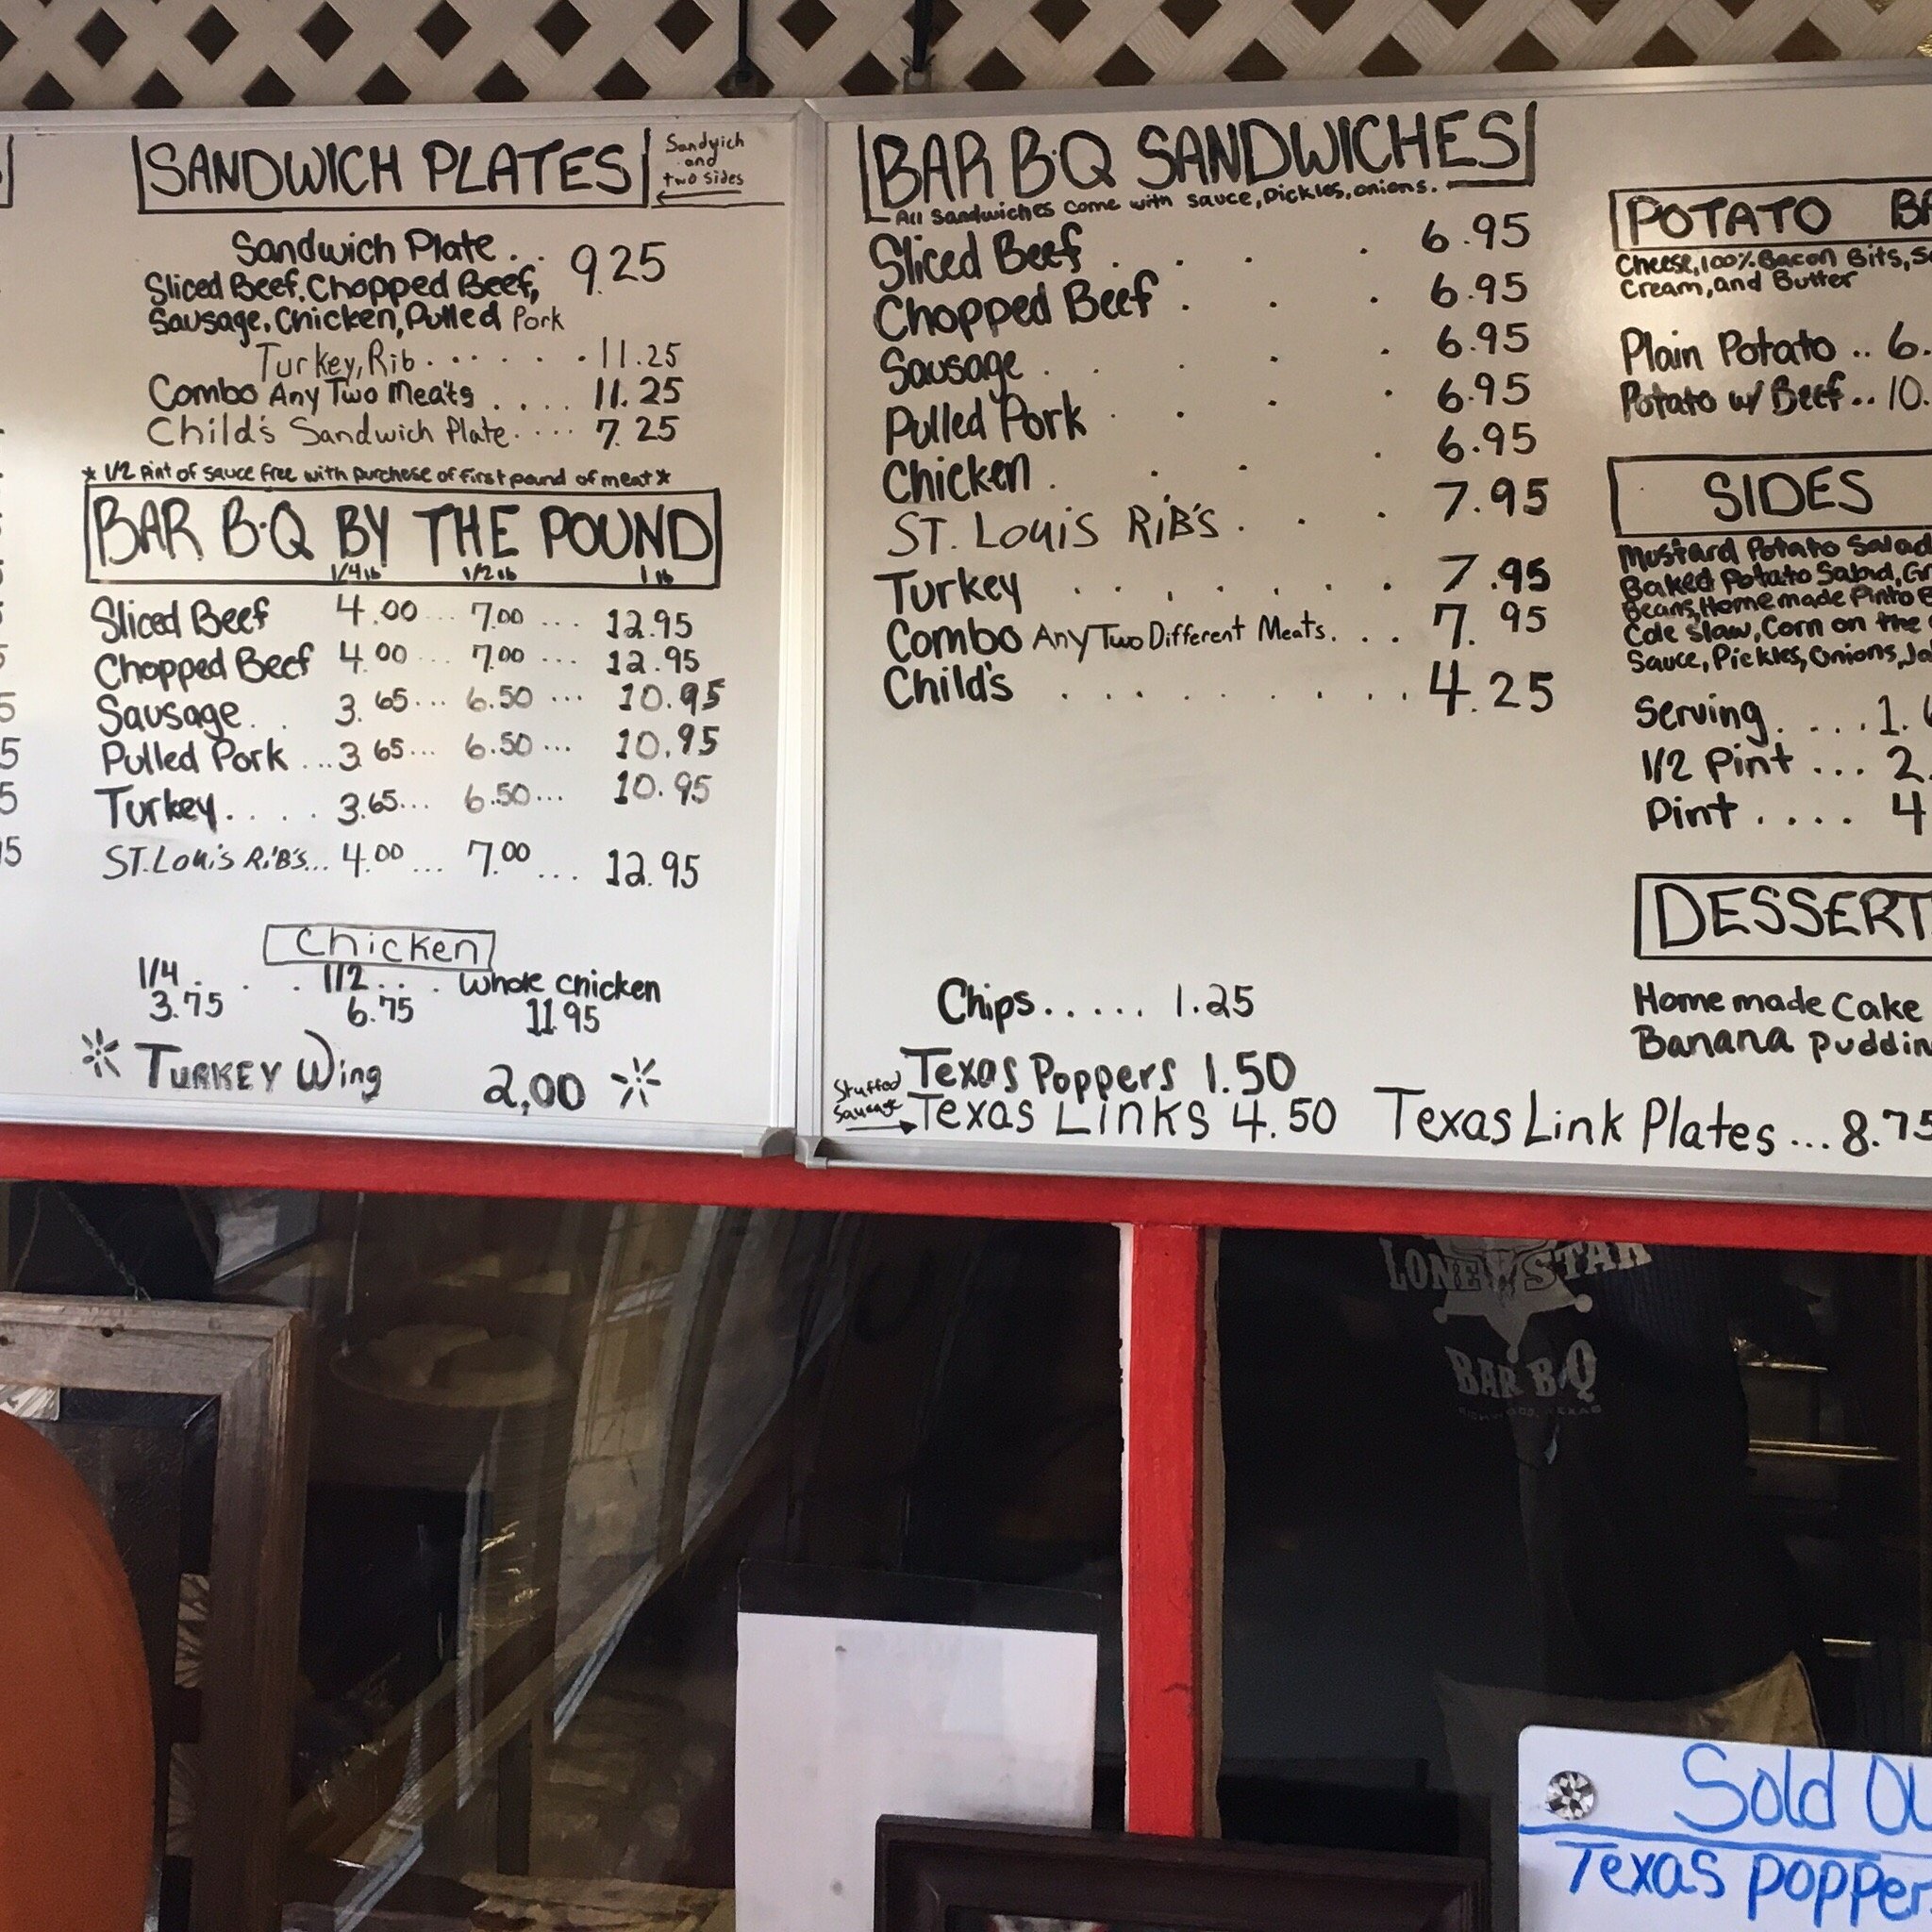 SANDWICH PLATES
Sandwich
and
two sides
Sandwich Plate . . . 9.25
Sliced Beef, Chopped Beef,
Sausage, Chicken, Pulled Pork
Turkey, Rib . . . . . . . 11.25
Combo Any Two Meats . . . . 11.25
Child's Sandwich Plate . . . . 7.25
* 1/2 Pint of sauce free with purchese of first pound of meat *
BAR B-Q BY THE POUND
1/4 lb 1/2 lb 1 lb
Sliced Beef 4.00 ... 7.00 ... 12.95
Chopped Beef 4.00 ... 7.00 ... 12.95
Sausage . . 3.65 ... 6.50 ... 10.95
Pulled Pork ... 3.65 ... 6.50 ... 10.95
Turkey . . . . 3.65 ... 6.50 ... 10.95
ST. Louis RiB's ... 4.00 ... 7.00 ... 12.95
Chicken
1/4 . . . 1/2 . . . whole chicken
3.75 6.75 11.95
TURKEY Wing 2.00
BAR B-Q SANDWICHES
All Sandwiches come with sauce, Pickles, onions.
Sliced Beef . . . . 6.95
Chopped Beef . . . 6.95
Sausage . . . . . 6.95
Pulled Pork . . . . 6.95
Chicken . . . . 6.95
ST. Louis RiB's . . . 7.95
Turkey . . . . . . . 7.95
Combo Any Two Different Meats . . . 7.95
Child's . . . . . . . . . 4.25
Chips ..... 1.25
Texas Poppers 1.50
Stuffed
Sausage
Texas Links 4.50 Texas Link Plates ... 8.75
POTATO
Cheese, 100% Bacon Bits,
Cream, and Butter
Plain Potato .. 6.
Potato w/ Beef .. 10.
SIDES
Mustard Potato Salad
Baked Potato Salad,
Beans, Homemade Pinto
Cole Slaw, Corn on the
Sauce, Pickles, Onions,
Serving . . . . 1.
1/2 Pint ... 2.
Pint .... 4
DESSERT
Home made Cake
Banana Puddin
LONE STAR
BAR B Q
Sold Ou
Texas popper